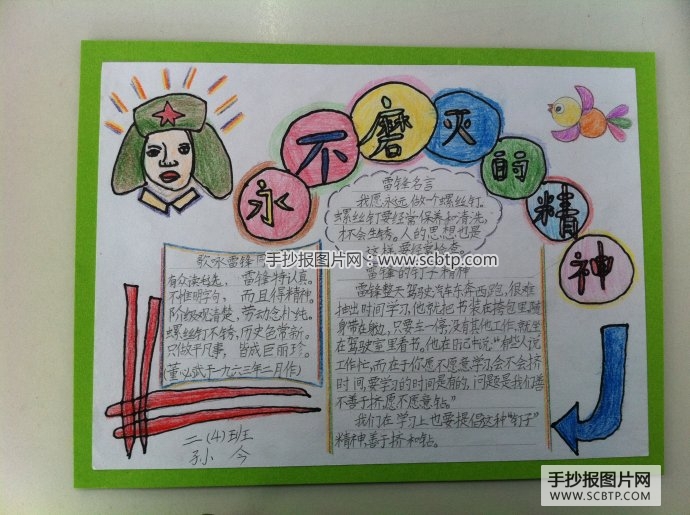 永不磨灭的精神
雷锋名言
我愿永远做个螺丝钉。
螺丝钉要经常保养和清洗,
才不会生锈。人的思想也是
这样,要经常检查
手抄报图片网:www.scbtp.com
雷锋的钉子精神
雷锋整天驾驶汽车东奔西跑,很难
抽出时间学习,他就把书装在挎包里,随
身带在身边,只要车一停,没有其他工作,就坐
在驾驶室里看书。他在日记中说“有些人说
工作忙,而在于你愿不愿意学习,会不会挤
时间,要学习的时间是有的,问题是我们善
不善于挤,愿不愿意钻。”
我们在学习上也要提倡这种“钉子”
精神,善于挤和钻。
歌咏雷锋同
有众读毛选,雷锋特认真。
不惟明字句,而且得精神。
阶级观清楚,劳动念朴纯。
螺丝钉不锈,历史色常新。
只做平凡事,皆成巨丽珍。
(董必武于一九六三年二月作)
二(4)班
孙今
手抄报图片网
WWW.SCBTP.COM